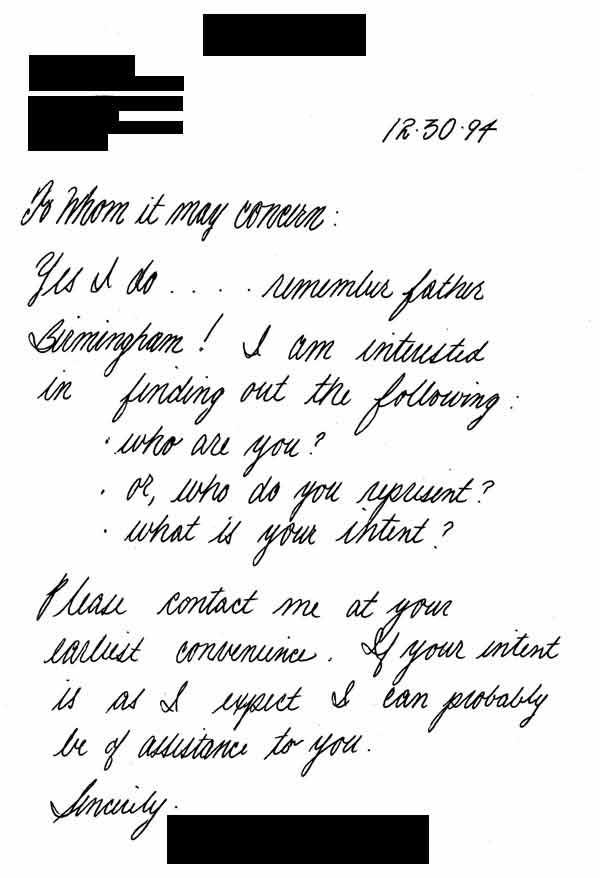 12·30·94
To Whom it may concern:
Yes I do . . . . remember father
Birmingham! I am interested
in finding out the following:
· who are you?
· or, who do you represent?
· what is your intent?
Please contact me at your
earliest convenience. If your intent
is as I expect I can probably
be of assistance to you.
Sincerely.